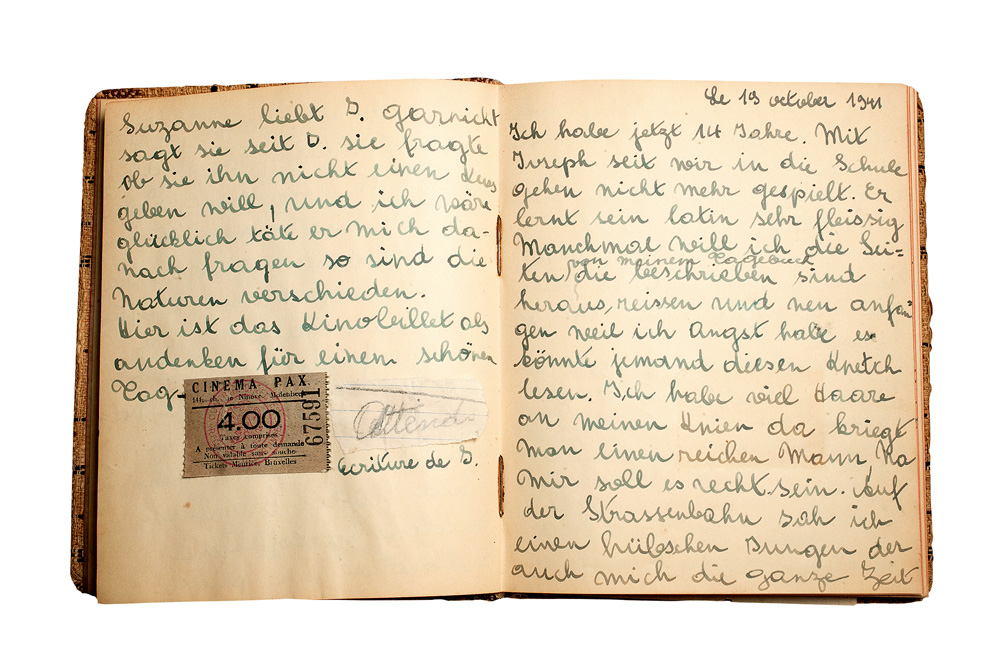 Suzanne liebt D. garnicht
sagt sie seit D. sie fragte
ob sie ihn nicht einen Kuss
geben will, und ich wäre
glücklich täte er mich da-
nach fragen so sind die
Naturen verschieden.
Hier ist das Kinobillet als
andenken für einem schönen
Tag-
CINEMA PAX.
4.00
67591
Taxes comprises
A présenter à toute demande
Non valable sans souche
Tickets Meurice, Bruxelles
Attends
Ecriture de D.
Le 13 october 1941
Ich habe jetzt 14 Jahre. Mit
Joseph seit wir in die Schule
gehen nicht mehr gespielt. Er
lernt sein latin sehr fleissig
Manchmal will ich die Sei-
von meinem Tagebuch
ten die beschrieben sind
heraus,reissen und neu anfan-
gen weil ich Angst habe es
könnte jemand diesen Knetch
lesen. Ich habe viel Haare
an meinen Knien da kriegt
man einen reichen Mann Na
mir soll es recht sein. Auf
der Strassenbahn sah ich
einen hübschen Jungen der
auch mich die ganze Zeit